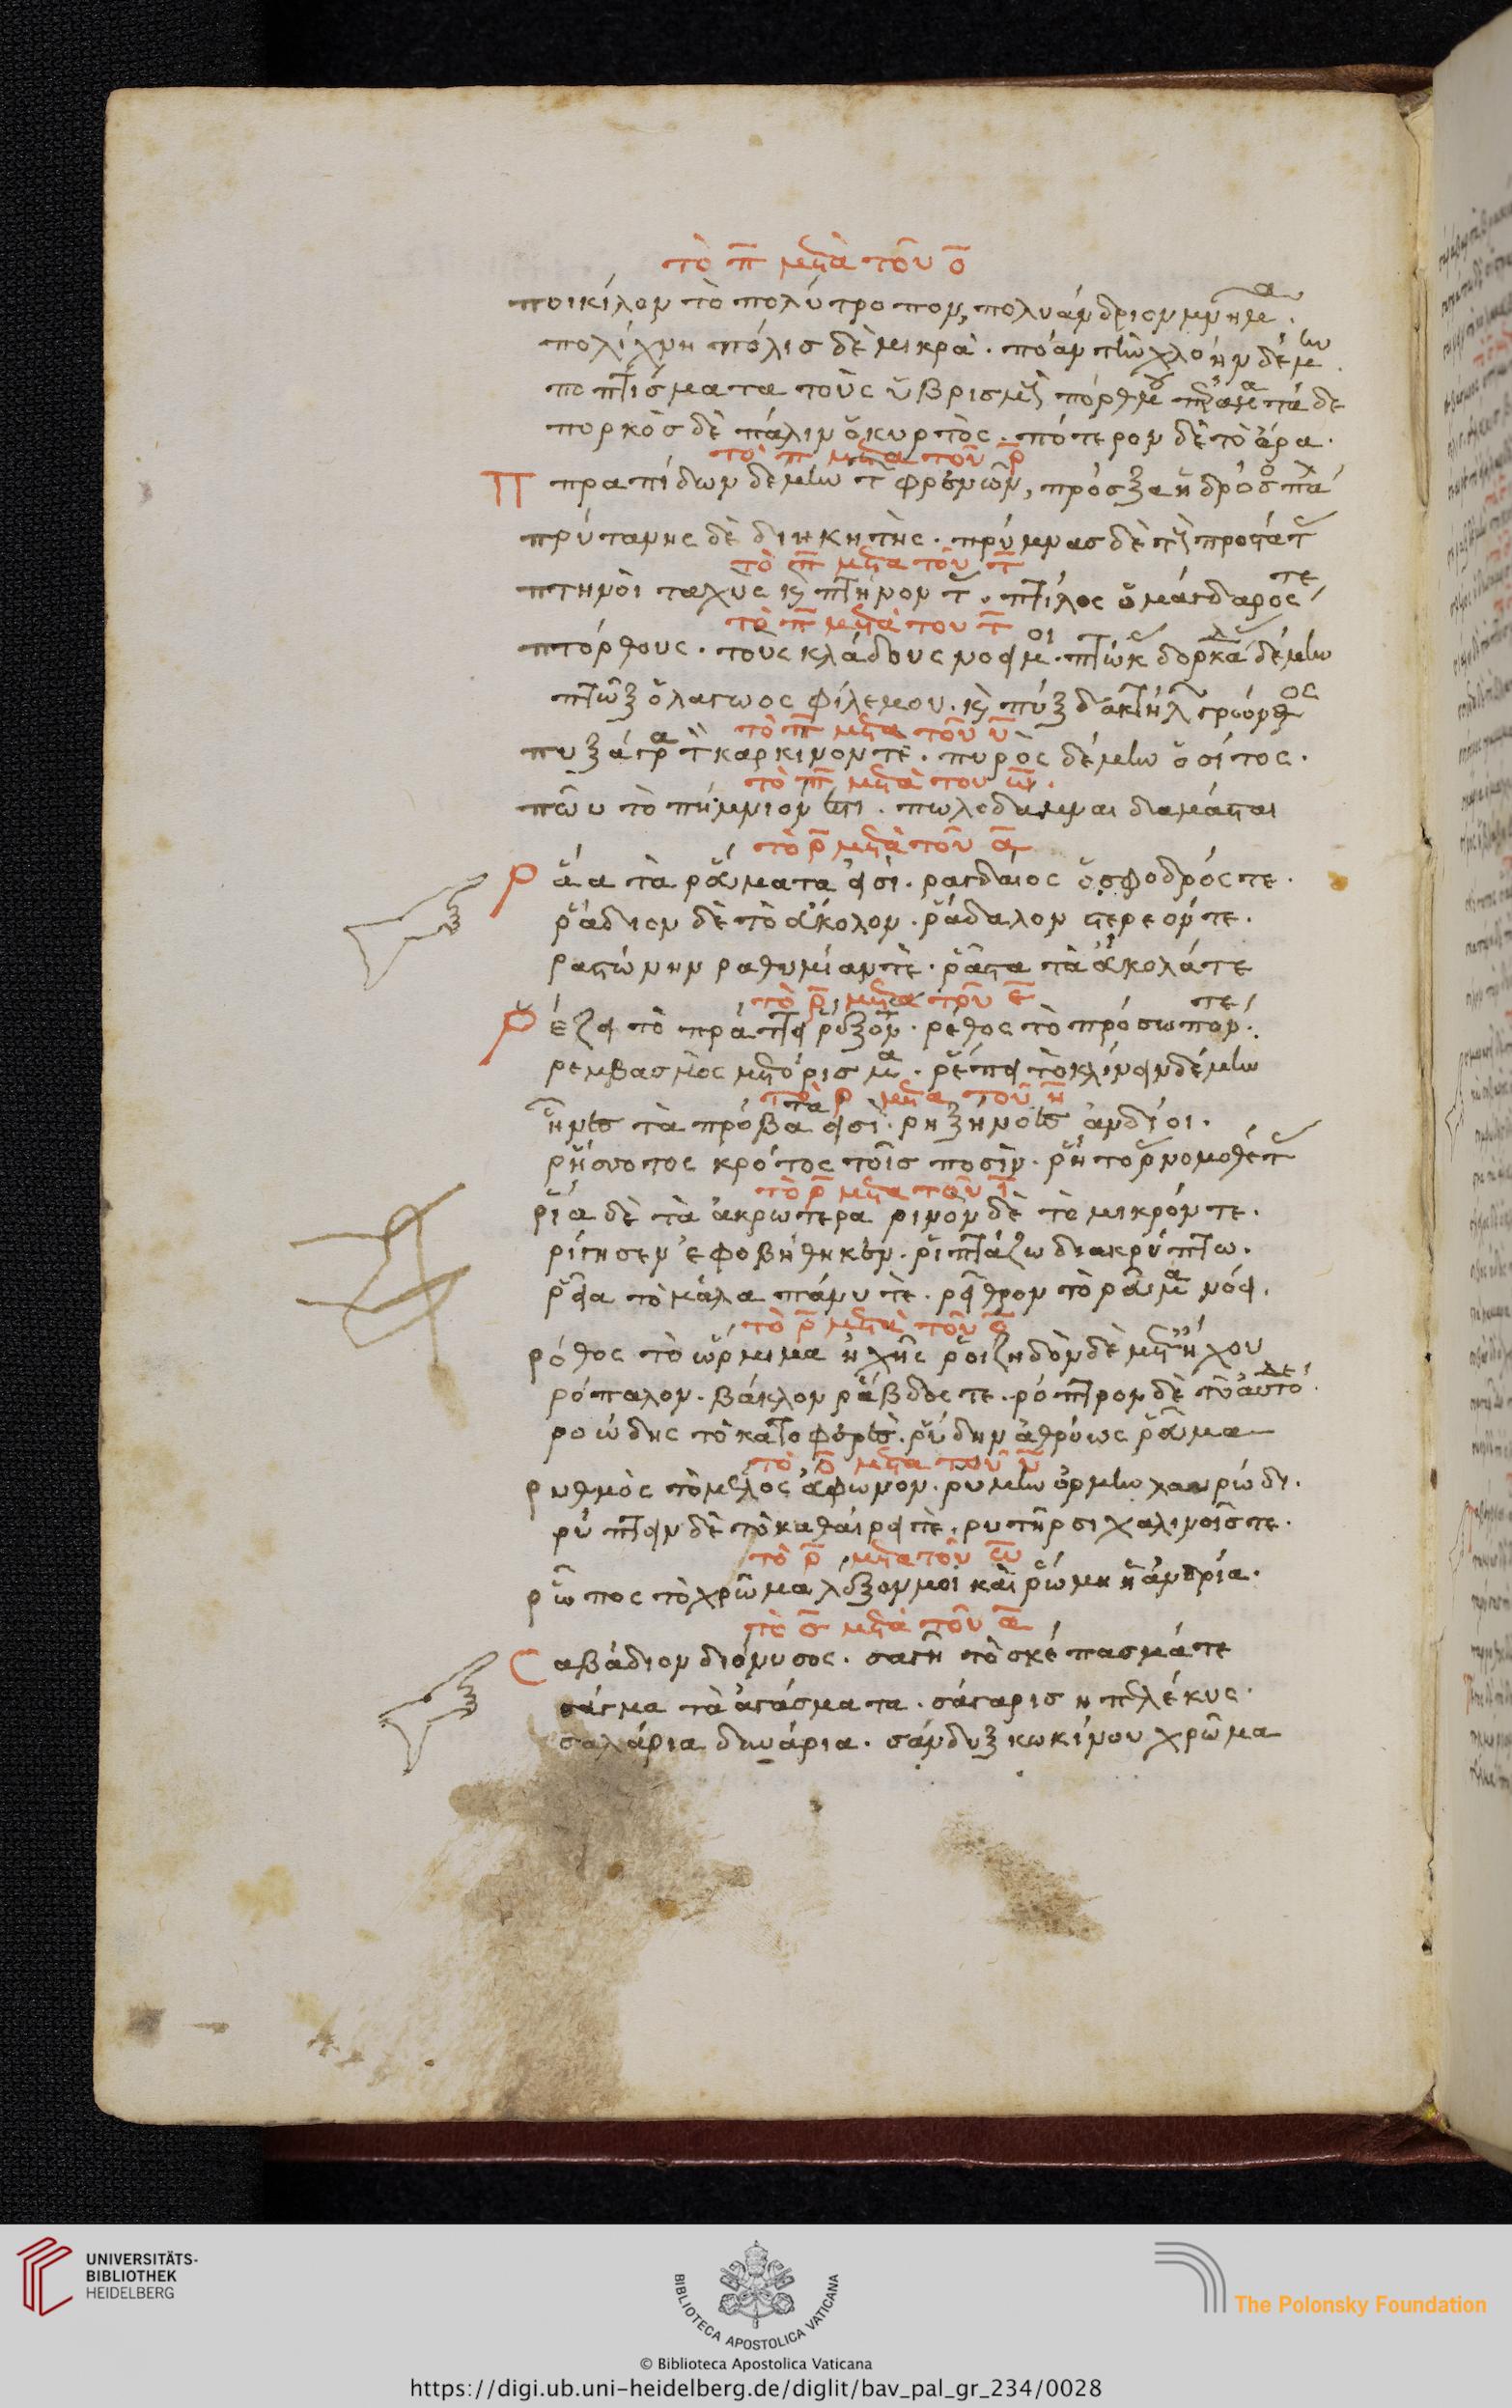 τὸ π̅ μετὰ τοῦ ο̅
ποικίλον τὸ πολύτροπον, πολυάνδριον μνῆμα.
πολίχνη πόλις δὲ μικρά. πόαν τὴν χλόην δέ μην
ποππίσματα τοὺς ὑβρισμ πόρθμ
πορκὸς δὲ πάλιν ὁ κυρτὸς. πότερον δὲ τὸ ἄρα.
τὸ π̅ μετὰ τοῦ ρ̅
Π πραπίδων δέ μην τ φρενῶν,
πρύτανης δὲ διηκητὴς. πρύμνας δὲ
τὸ π̅ μετὰ τοῦ τ̅
πτηνοὶ ταχὺς καὶ πτῆνον τ. πτίλος ὁ μάνδαρος τε
τὸ π̅ μετὰ του τ̅
πτόρθους. τοὺς κλάδους νοει μοι. πτώκ δορκα δέ μην
πτῶξ ὁ λαγωὸς φίλε μου. καὶ πύξ
τὸ π̅ μετὰ τοῦ υ̅
πυξάγρα τ καρκινον τε. πυρὸς δέ μην ὁ σίτος.
τὸ π̅ μετὰ του ω̅.
πῶυ τὸ ποίμνιον ἐστι. πωλεδαμναι διαμάσαι
τὸ ρ̅ μετὰ τοῦ α̅
Ρ άα τὰ ῥάματα φησὶ. ραγδαιος ὁ σφοδρός τε.
ῥάδιον δὲ τὸ εὔκολον. ῥάδαλον στερεόν τε.
ραστώνην ραθυμίαν τὲ. ῥᾶστα τὰ εὔκολά τε
τὸ ρ̅ μετὰ τοῦ ε̅
Ρ έζει τὸ πράττει ῥέξον. ρέθος τὸ πρόσωπον τε.
ρεμβασμὸς μετεόρισμα. ῥέπει τὸ κλίνειν δέ μην
τὸ ρ̅ μετὰ τοῦ η̅
ῥῆνες τὰ πρόβατα φησὶ. ρηξήνορες ἀνδρίοι.
ῥήσυοτος κρότος τοῖς ποσὶν. ῥήτορ νομοθέτ
τὸ ρ̅ μετὰ τοῦ ι̅
ῥία δὲ τὰ ἀκρωτερα ρινὸν δὲ τὸ μικρόν τε.
ρίγησεν ἐφοβήθηκεν. ῥιπτάζω διακρύπτω.
ῥεῖα τὸ μάλα πάνυ τε. ρεῖθρον τὸ ῥαῦμα νόει.
τὸ ρ̅ μετὰ τοῦ ο̅
ρόθος τὸ ὥρμιμα ἠχῆς ροιζηδὸν δὲ μετ ἤχου
ρόπαλον. βάκλον ῥάβδος τε. ρόπτρον δὲ τὸ αὐτό λέ.
ροώδης τὸ κατοφερὲς. ῥύδην ἀθρόως ῥᾶμα
τὸ ρ̅ μετὰ τοῦ υ̅
ρυθμὸς τὸ μέλος ἄφωνον. ρυμην ὁρμην χαυρώδι.
ρύπτειν δὲ τὸ καθαίρει τὲ. ρυτῆρσι χαλινοῖς τε.
τὸ ρ̅ μετὰ τοῦ ω̅
ρῶπος τὸ χρῶμα λέξον μοι καὶ ῥώμη ἡ ἀνδρία.
τὸ σ̅ μετὰ τοῦ α̅
Σ αβάδιον διόνυσος. σαγὴ τὸ σκέπασμά τε
σάγμα τὰ ἀγάσματα. σάγαρις ἡ πέλεκυς.
σαλάρια δηνάρια. σάνδυξ κωκίνου χρῶμα
UNIVERSITÄTS-
BIBLIOTHEK
HEIDELBERG
BIBLIOTECA APOSTOLICA VATICANA
The Polonsky Foundation
© Biblioteca Apostolica Vaticana
https://digi.ub.uni-heidelberg.de/diglit/bav_pal_gr_234/0028